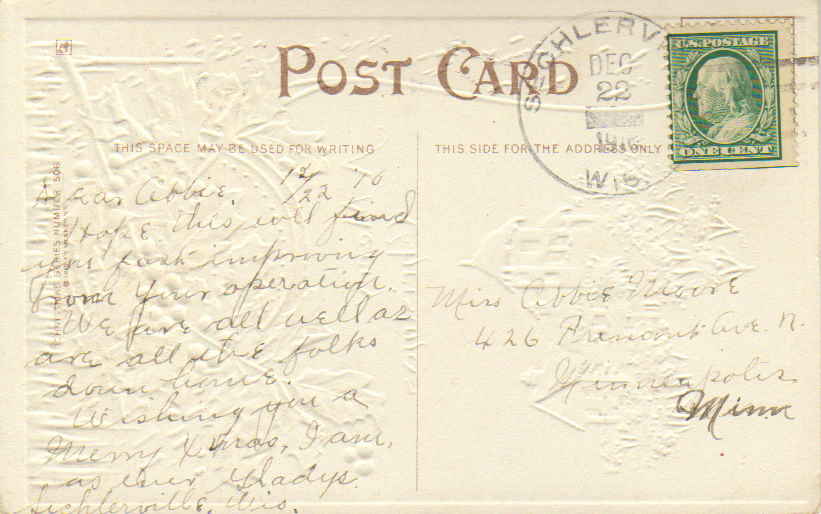 POST CARD
THIS SPACE MAY BE USED FOR WRITING
THIS SIDE FOR THE ADDRESS ONLY
SECHLERV
DEC
22
WIS.
U.S. POSTAGE
ONE CENT
Dear Abbie. 12/22 '10
Hope this will find
you fast improving
from your operation.
We are all well as
are all the folks
down home.
Wishing you a
Merry Xmas, I am,
as ever Gladys.
Sechlerville, Wis.
Miss Abbie Moore
426 Fremont Ave. N.
Minneapolis
Minn
SERIES NUMBER 506